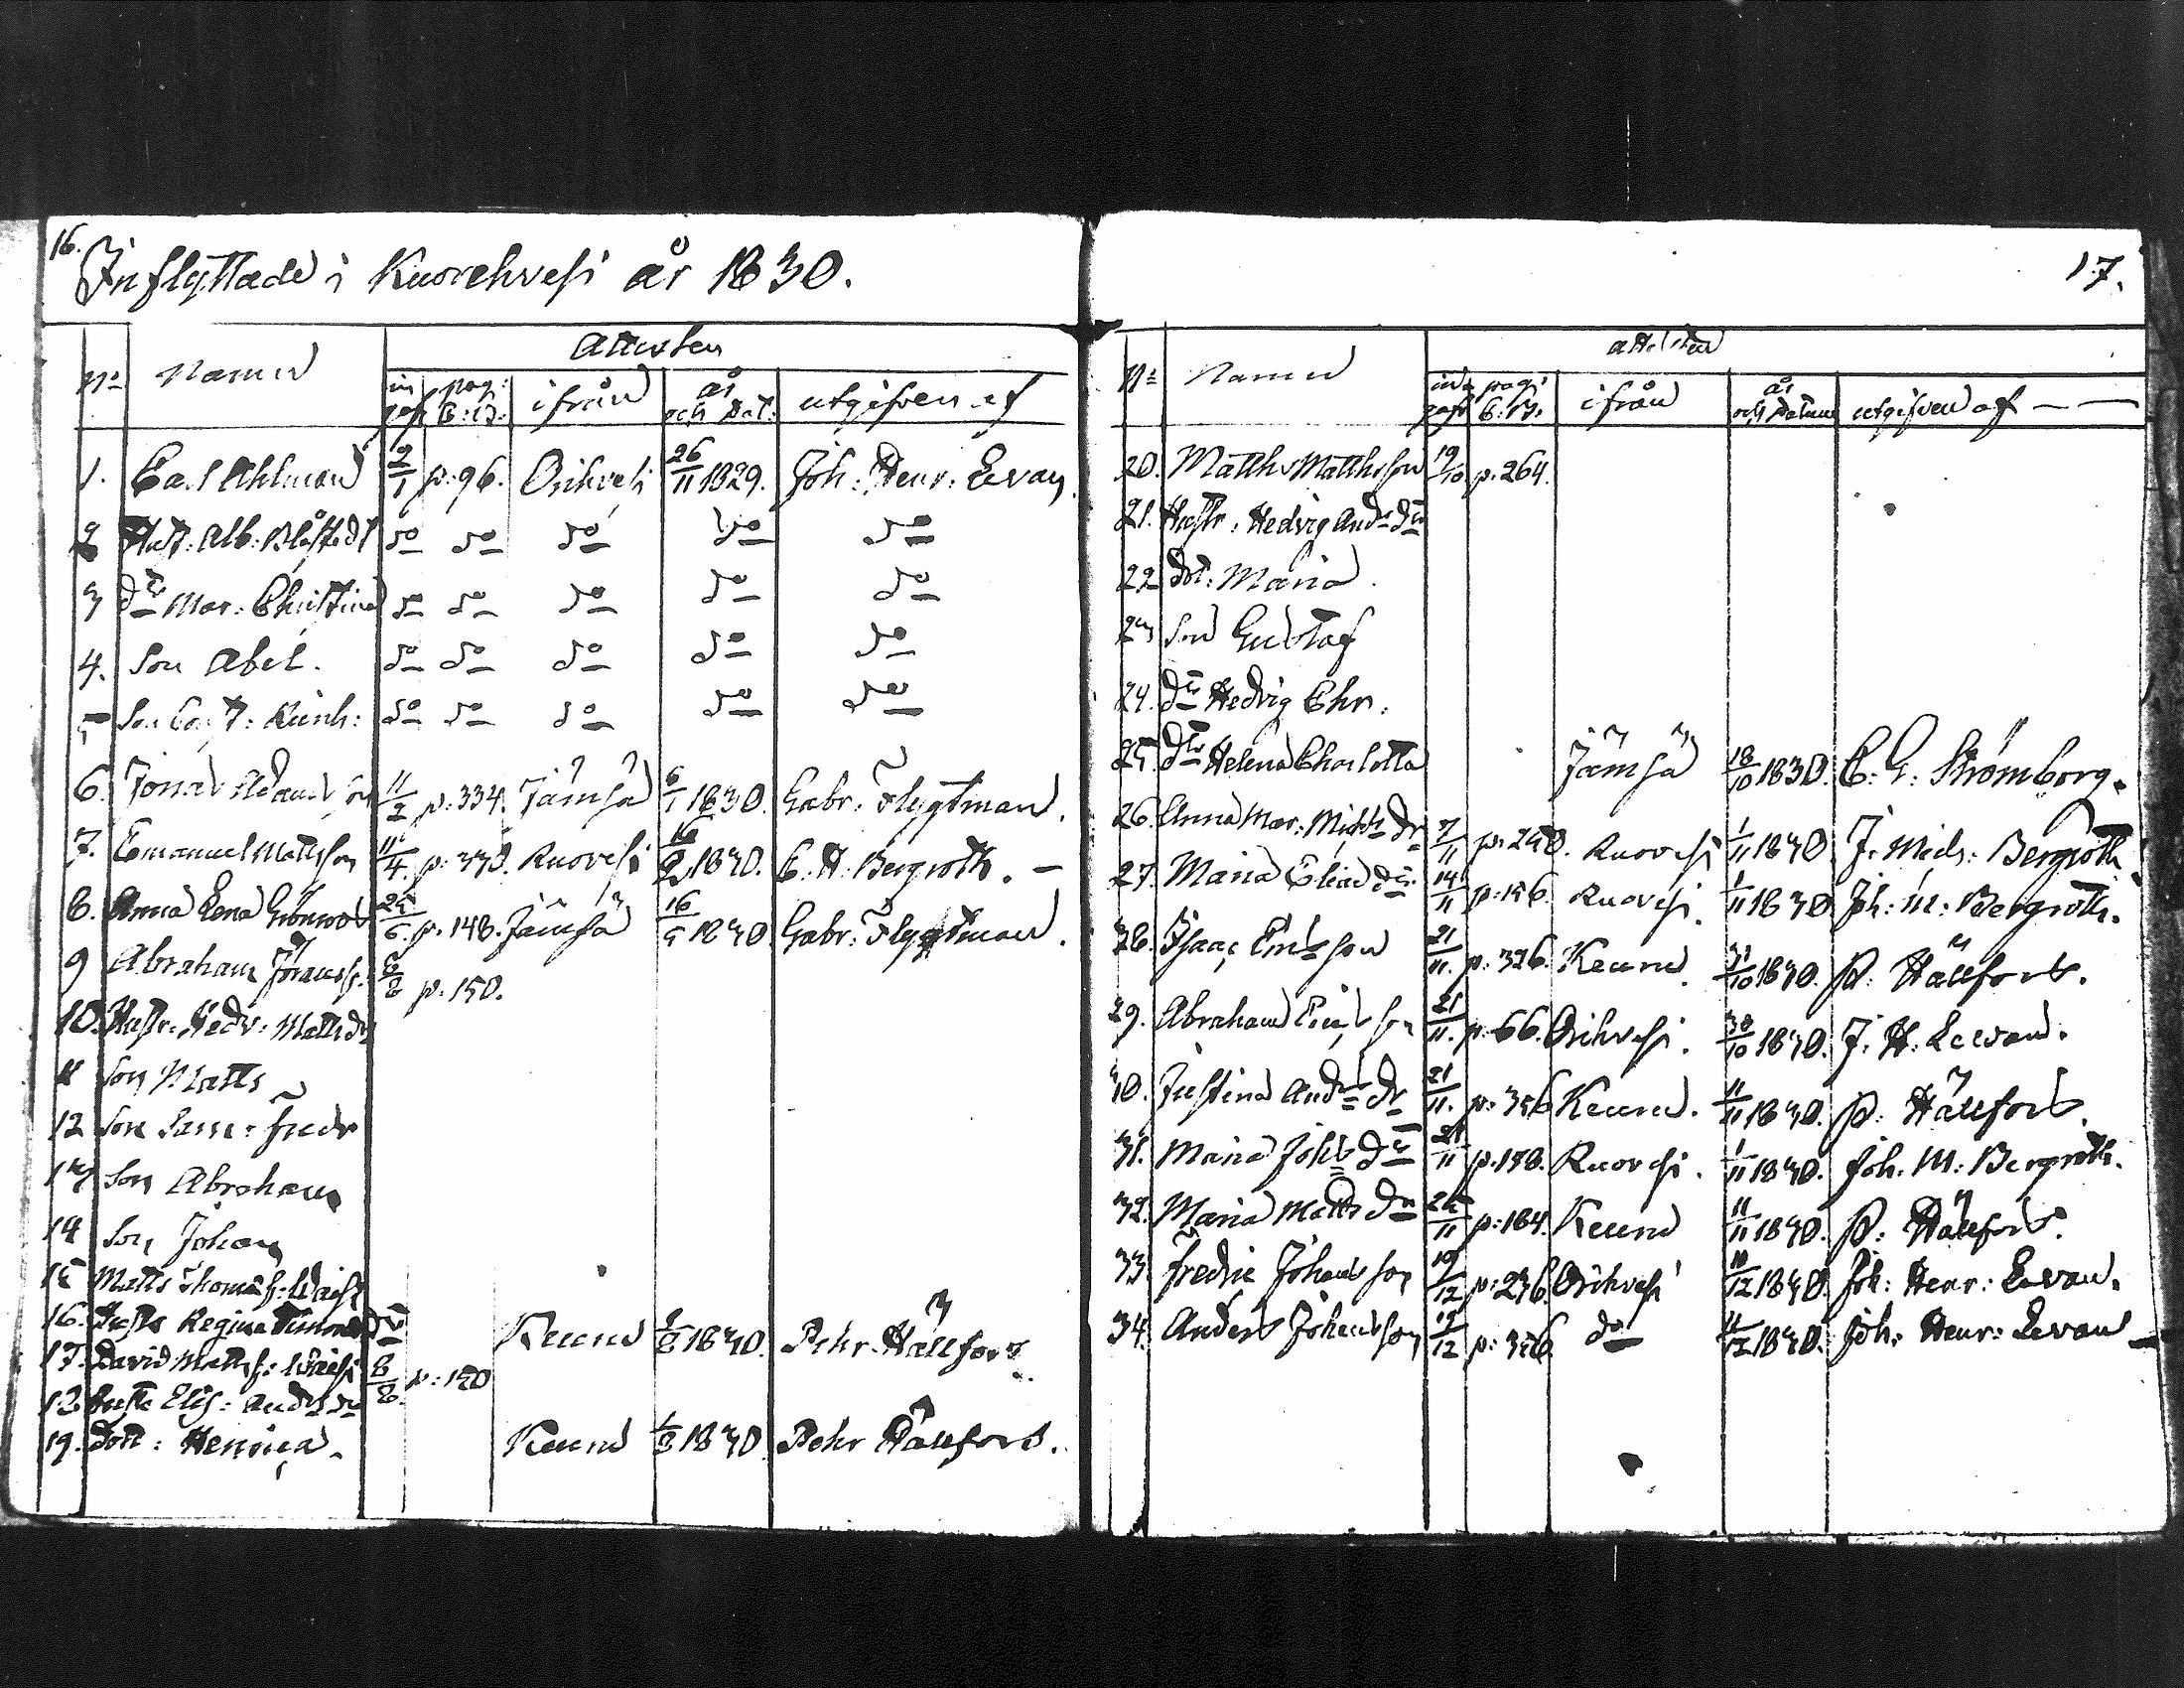 16.
Inflyttade i Kuorehvesi år 1830.
No Namn Attesten
in gaf pag: C:B: ifrån år och Dat: utgifven af
1. Carl Ahlman 2/1 p:96. Orihvesi 26/11 1829. Joh: Henr: Levan.
2 Hust: Alb: Blåfjedt do do do do do
3 dr Mar: Christina do do do do do
4. Son Abel. do do do do do
5 Son Carl: Reinh: do do do do do
6. Jonas Adamsson 11/2 p:334. Jämsä 6/1 1830. Gabr: Flygtman.
7. Emanuel Mattsson 11/4 p:330. Ruovesi 16/2 1830. C. H: Bergroth. —
8. Anna Lena Grönroos 25/6 p. 148. Jämsä 16/5 1830 Gabr: Flygtman.
9 Abraham 8/8 p:150.
10. Hustr: Hedv: Matts dr
11 Son Matts
12 Son Sam: Fredr
13 Son Abraham
14 Son Johan
15 Matts Thomas s:
16. Hustr Regina dr Keuru 1/8 1830. Pehr Hällfors
17. David Matts s: 8/8 p:150
18 Hustr Elis: Anders dr
19. Dott: Henrica. Keuru 1/8 1830 Pehr Hällfors.
17.
No Namn attesten
in gaf pag: C:B. ifrån år och Datum utgifven af — —
20. Matths Matthsson 19/10 p:264.
21. Hustr: Hedvig Ands dr
22 Dot: Maria.
23 Son Gustaf
24. dr Hedvig Chr:
25. dr Helena Charlotta Jämsä 18/10 1830. C. G: Strömborg.
26. Anna Mar: Michs dr 7/11 p:250. Ruovesi 1/11 1830 J. Mich: Bergroth
27. Maria Elias dr 14/11 p:156. Ruovesi. 1/11 1830 Joh: M: Bergroth.
28. Isaac son 21/11. p:326. Keuru. 31/10 1830. P: Hällfors.
29. Abraham son 21/11. p:66. Orihvesi. 30/10 1830. J. H: Levan.
30. Justina Anders dr 21/11. p:356 Keuru. 11/11 1830. P: Hällfors.
31. Maria Johs dr 21/11 p.150. Ruovesi. 1/11 1830. Joh. M: Bergroth.
32. Maria Matts dr 25/11 p:184. Keuru 11/11 1830. P: Hällfors.
33. Fredric Johansson 19/12 p:236. Orihvesi 11/12 1830. Joh: Henr: Levan.
34. Anders Johansson 19/12 p:356 do 11/12 1830. Joh: Henr: Levan —